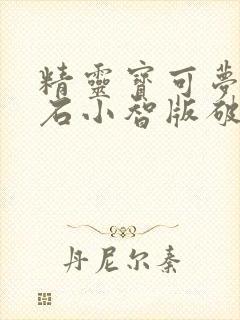 精靈寶可夢
石小智版破
丹尼尔秦